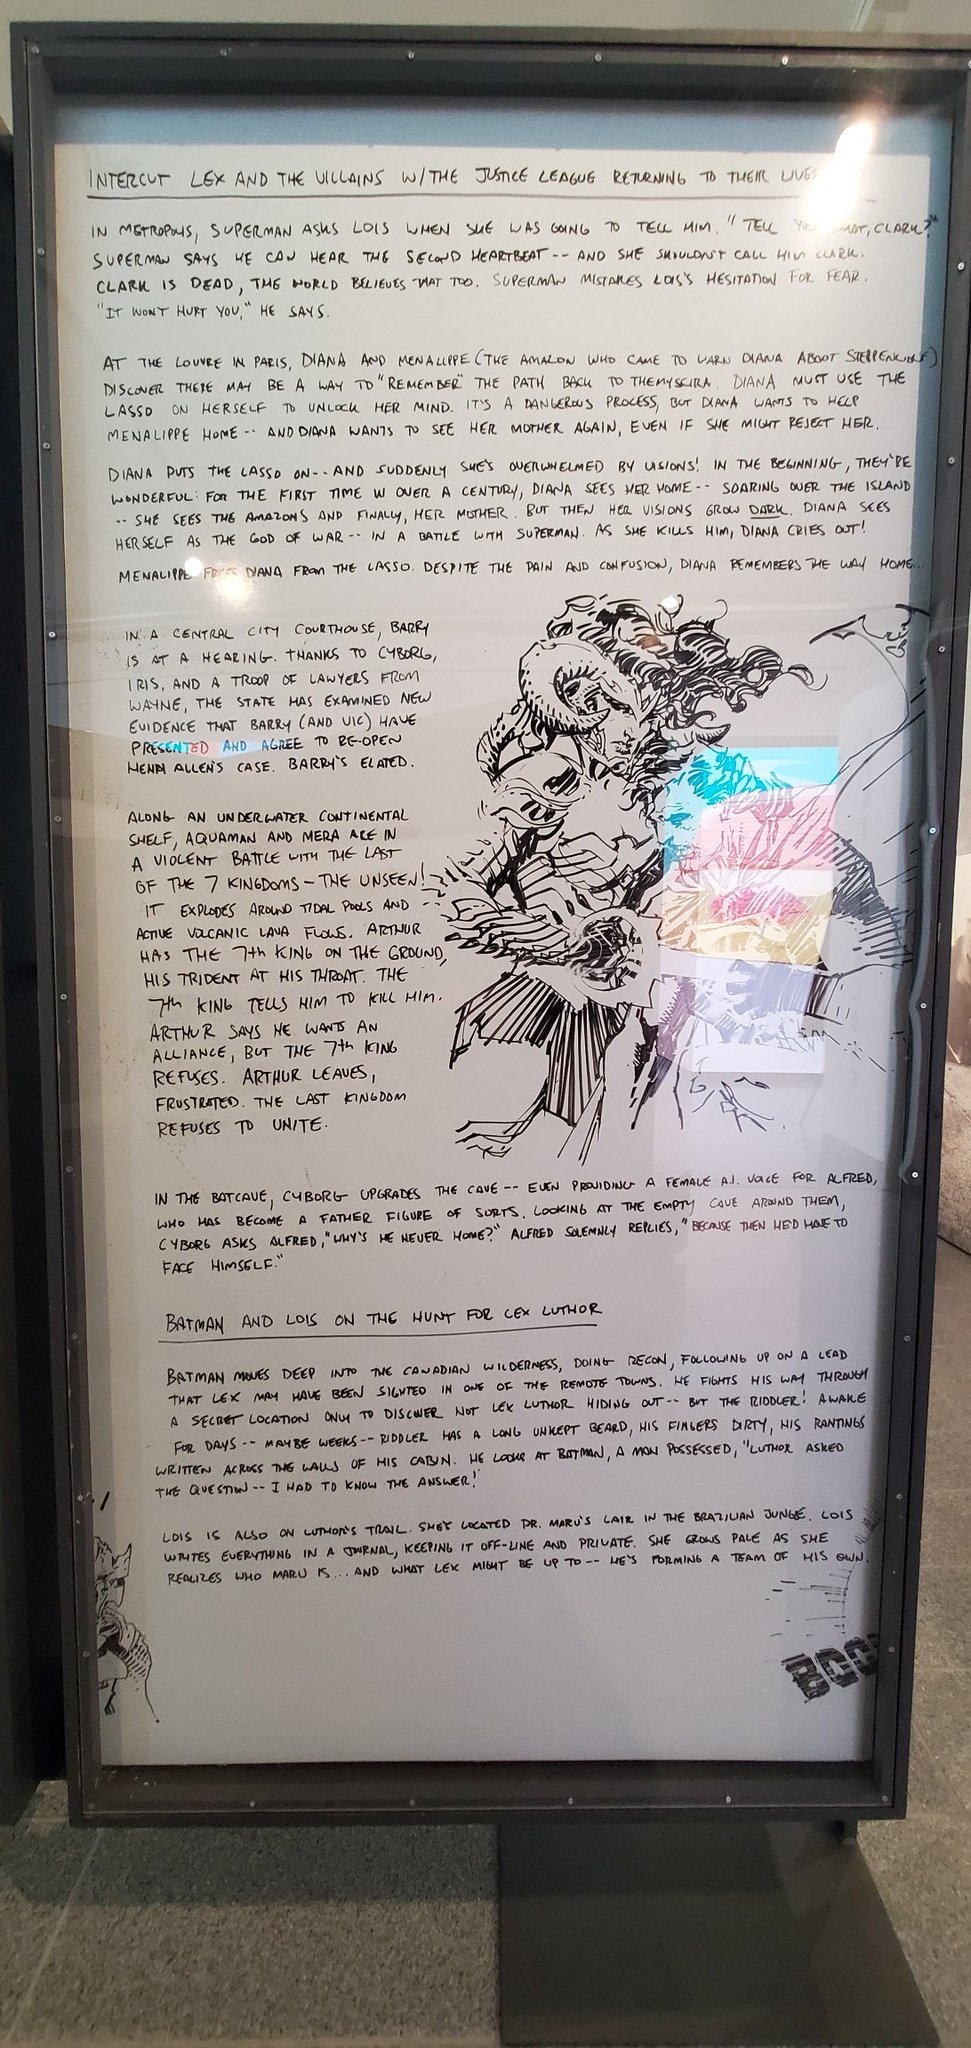 INTERCUT LEX AND THE VILLAINS W/THE JUSTICE LEAGUE RETURNING TO THEIR LIVES
IN METROPOLIS, SUPERMAN ASKS LOIS WHEN SHE WAS GOING TO TELL HIM. "TELL YOU WHAT, CLARK?"
SUPERMAN SAYS HE CAN HEAR THE SECOND HEARTBEAT -- AND SHE SHOULDN'T CALL HIM CLARK.
CLARK IS DEAD, THE WORLD BELIEVES THAT TOO. SUPERMAN MISTAKES LOIS'S HESITATION FOR FEAR.
"IT WON'T HURT YOU," HE SAYS.
AT THE LOUVRE IN PARIS, DIANA AND MENALIPPE (THE AMAZON WHO CAME TO WARN DIANA ABOUT STEPPENWOLF)
DISCOVER THERE MAY BE A WAY TO "REMEMBER" THE PATH BACK TO THEMYSCIRA. DIANA MUST USE THE
LASSO ON HERSELF TO UNLOCK HER MIND. IT'S A DANGEROUS PROCESS, BUT DIANA WANTS TO HELP
MENALIPPE HOME -- AND DIANA WANTS TO SEE HER MOTHER AGAIN, EVEN IF SHE MIGHT REJECT HER.
DIANA PUTS THE LASSO ON -- AND SUDDENLY SHE'S OVERWHELMED BY VISIONS! IN THE BEGINNING, THEY'RE
WONDERFUL: FOR THE FIRST TIME IN OVER A CENTURY, DIANA SEES HER HOME -- SOARING OVER THE ISLAND
-- SHE SEES THE AMAZONS AND FINALLY, HER MOTHER. BUT THEN HER VISIONS GROW DARK. DIANA SEES
HERSELF AS THE GOD OF WAR -- IN A BATTLE WITH SUPERMAN. AS SHE KILLS HIM, DIANA CRIES OUT!
MENALIPPE FREES DIANA FROM THE LASSO. DESPITE THE PAIN AND CONFUSION, DIANA REMEMBERS THE WAY HOME...
IN A CENTRAL CITY COURTHOUSE, BARRY
IS AT A HEARING. THANKS TO CYBORG,
IRIS, AND A TROOP OF LAWYERS FROM
WAYNE, THE STATE HAS EXAMINED NEW
EVIDENCE THAT BARRY (AND VIC) HAVE
PRESENTED AND AGREE TO RE-OPEN
HENRY ALLEN'S CASE. BARRY'S ELATED.
ALONG AN UNDERWATER CONTINENTAL
SHELF, AQUAMAN AND MERA ARE IN
A VIOLENT BATTLE WITH THE LAST
OF THE 7 KINGDOMS - THE UNSEEN!
IT EXPLODES AROUND TIDAL POOLS AND
ACTIVE VOLCANIC LAVA FLOWS. ARTHUR
HAS THE 7TH KING ON THE GROUND,
HIS TRIDENT AT HIS THROAT. THE
7TH KING TELLS HIM TO KILL HIM.
ARTHUR SAYS HE WANTS AN
ALLIANCE, BUT THE 7TH KING
REFUSES. ARTHUR LEAVES,
FRUSTRATED. THE LAST KINGDOM
REFUSES TO UNITE.
IN THE BATCAVE, CYBORG UPGRADES THE CAVE -- EVEN PROVIDING A FEMALE A.I. VOICE FOR ALFRED,
WHO HAS BECOME A FATHER FIGURE OF SORTS. LOOKING AT THE EMPTY CAVE AROUND THEM,
CYBORG ASKS ALFRED, "WHY'S HE NEVER HOME?" ALFRED SOLEMNLY REPLIES, "BECAUSE THEN HE'D HAVE TO
FACE HIMSELF."
BATMAN AND LOIS ON THE HUNT FOR LEX LUTHOR
BATMAN MOVES DEEP INTO THE CANADIAN WILDERNESS, DOING RECON, FOLLOWING UP ON A LEAD
THAT LEX MAY HAVE BEEN SIGHTED IN ONE OF THE REMOTE TOWNS. HE FIGHTS HIS WAY THROUGH
A SECRET LOCATION ONLY TO DISCOVER NOT LEX LUTHOR HIDING OUT -- BUT THE RIDDLER! AWAKE
FOR DAYS -- MAYBE WEEKS -- RIDDLER HAS A LONG UNKEPT BEARD, HIS FINGERS DIRTY, HIS RANTINGS
WRITTEN ACROSS THE WALLS OF HIS CABIN. HE LOOKS AT BATMAN, A MAN POSSESSED, "LUTHOR ASKED
THE QUESTION -- I HAD TO KNOW THE ANSWER!"
LOIS IS ALSO ON LUTHOR'S TRAIL. SHE'S LOCATED DR. MARU'S LAIR IN THE BRAZILIAN JUNGLE. LOIS
WRITES EVERYTHING IN A JOURNAL, KEEPING IT OFF-LINE AND PRIVATE. SHE GROWS PALE AS SHE
REALIZES WHO MARU IS... AND WHAT LEX MIGHT BE UP TO -- HE'S FORMING A TEAM OF HIS OWN.